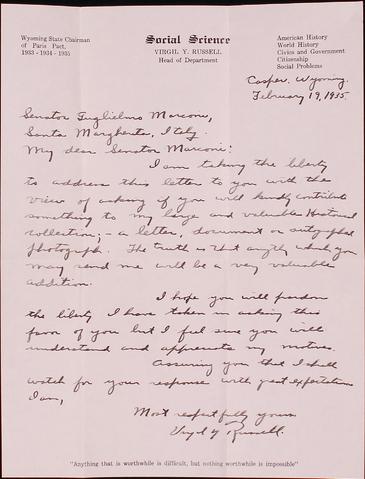 Wyoming State Chairman
of Paris Pact,
1933 - 1934 - 1935
Social Science
VIRGIL Y. RUSSELL
Head of Department
American History
World History
Civics and Government
Citizenship
Social Problems
Casper, Wyoming.
February 19, 1935.
Senator Guglielmo Marconi,
Santa Margherita, Italy.
My dear Senator Marconi:
I am taking the liberty
to address this letter to you with the
view of asking if you will kindly contribute
something to my large and valuable Historical
collection; - a letter, document or autographed
photograph. The truth is that anything which you
may send me will be a very valuable
addition.
I hope you will pardon
the liberty I have taken in asking this
favor of you but I feel sure you will
understand and appreciate my motives.
Assuring you that I shall
watch for your response with great expectations
I am,
Most respectfully yours
Virgil Y. Russell.
"Anything that is worthwhile is difficult, but nothing worthwhile is impossible"